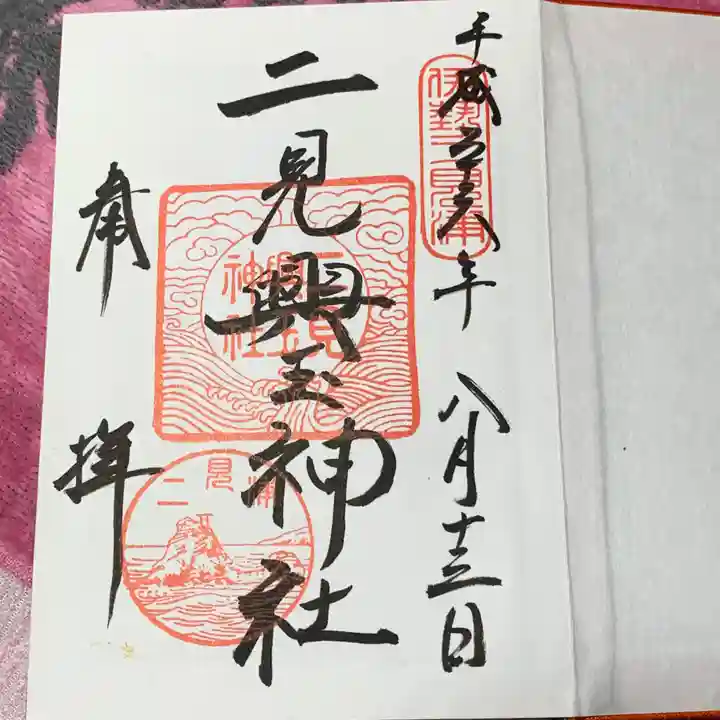 平成 年 八月十三日
伊勢二見浦
二見興玉神社
二見興玉神社
二見浦
奉拝